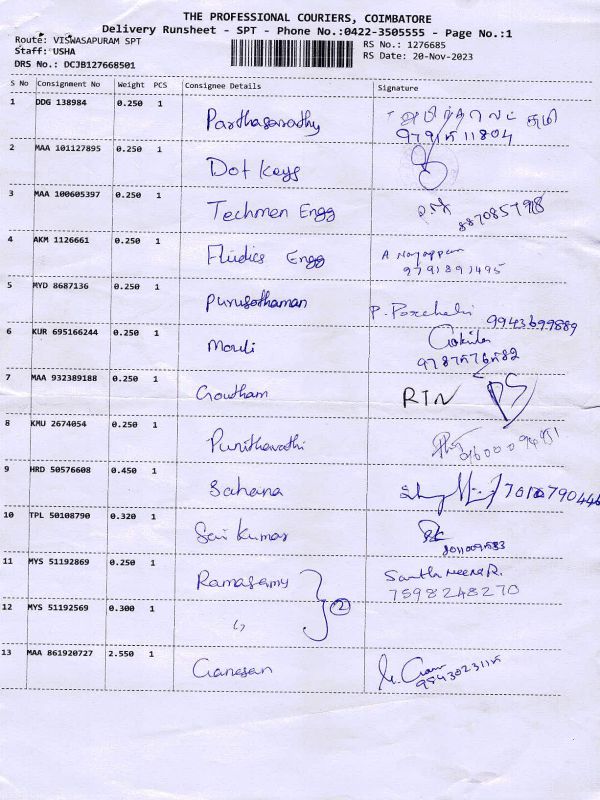 THE PROFESSIONAL COURIERS, COIMBATORE
Delivery Runsheet - SPT - Phone No.:0422-3505555 - Page No.:1
Route: VISWASAPURAM SPT RS No.: 1276685
Staff: USHA RS Date: 20-Nov-2023
DRS No.: DCJB127668501
S No Consignment No Weight PCS Consignee Details Signature
1 DDG 138984 0.250 1 Parthasarathy
2 MAA 101127895 0.250 1 Dot Keys
3 MAA 100605397 0.250 1 Techmen Engg
4 AKM 1126661 0.250 1 Fluidics Engg A Nagappan
9791891495
5 MYD 8687136 0.250 1 Purusothaman P. Porchelvi 9943699889
6 KUR 695166244 0.250 1 Mouli
7 MAA 932389188 0.250 1 Goutham RTN
8 KMU 2674054 0.250 1 Punithavathi
9 HRD 50576608 0.450 1 Sahana
10 TPL 50108790 0.320 1 Sai Kumar
11 MYS 51192869 0.250 1 Ramasamy
7598248270
12 MYS 51192569 0.300 1 ,, 2
13 MAA 861920727 2.550 1 Ganesan